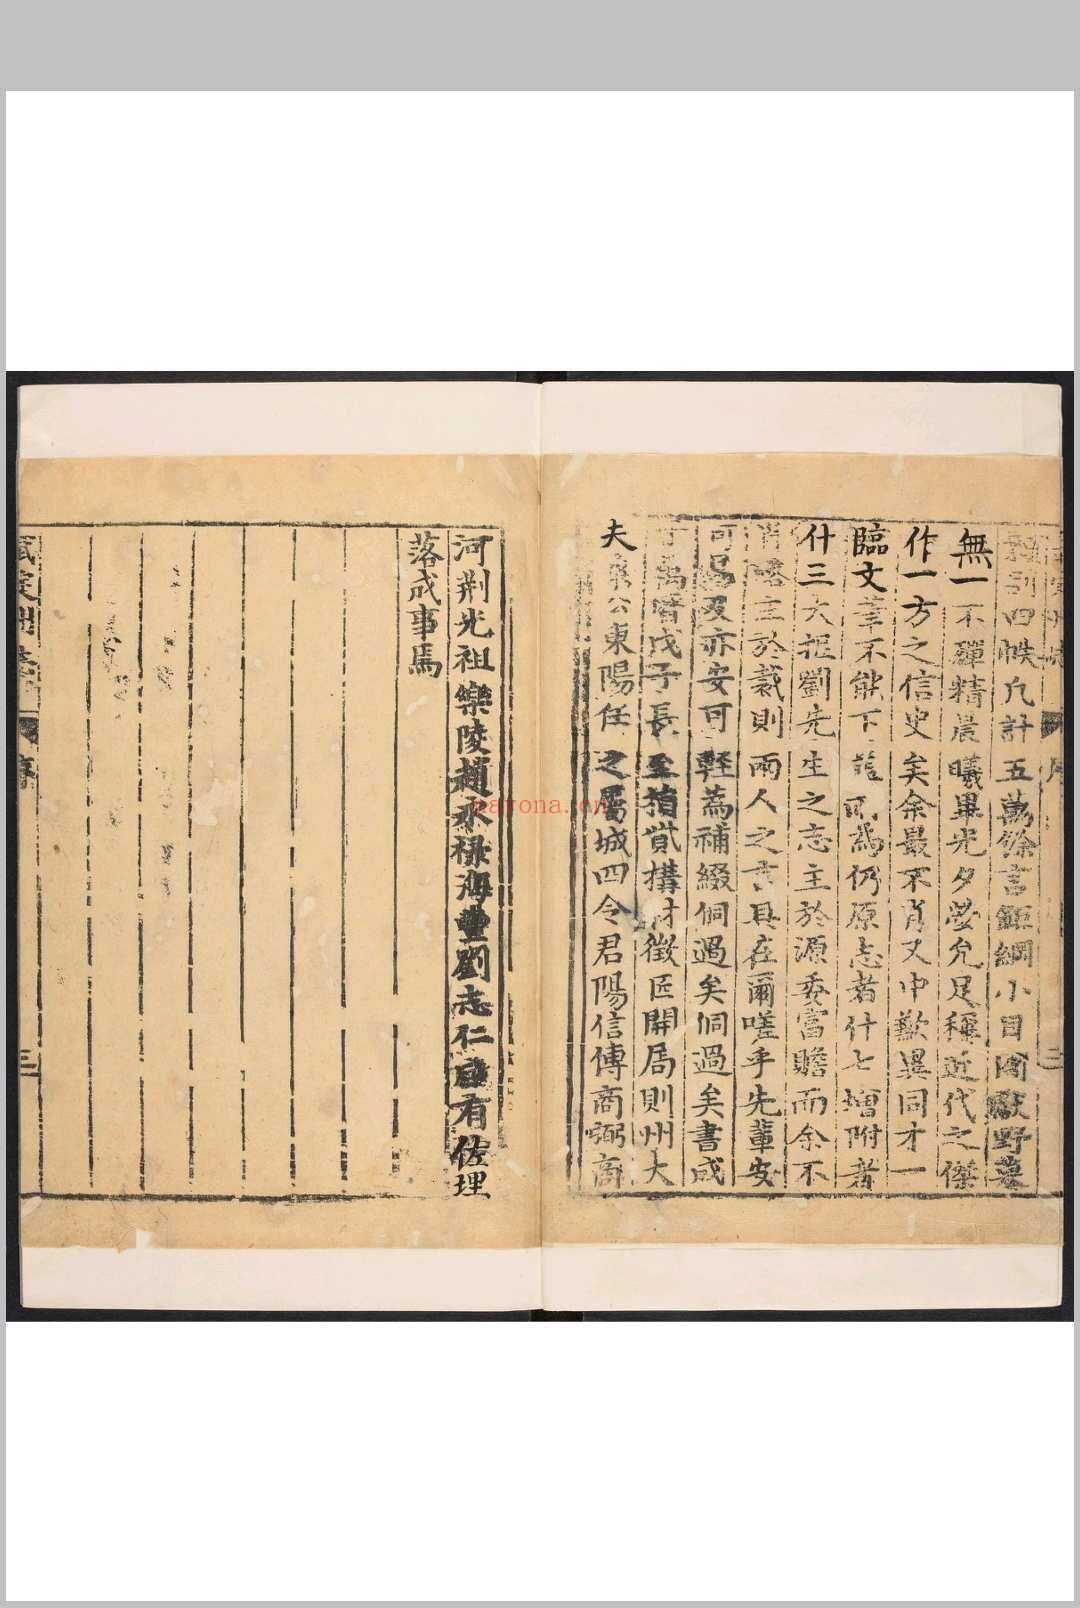 四帙凢計五萬餘言鉅綱小目閭獻野墓
無一不殫精晨曦畢光夕熒允足稱近代之傑
作一方之信史矣余最不肖又中歉異同才一
臨文筆不能下爲仍原志者什七增附者
什三大抵劉先生之志主於源委富贍而余不
主於裁則兩人之言具在爾嗟乎先輩安
可及亦安可輕爲補綴侗過矣侗過矣書成
戊子長至捐貲構材徵匠開局則州大
夫公東陽任之屬城四令君陽信傅商弼商
河荆光祖樂陵趙承禄海豐劉志仁有佐理
落成事焉
武定州志
序
三
nayona.cn